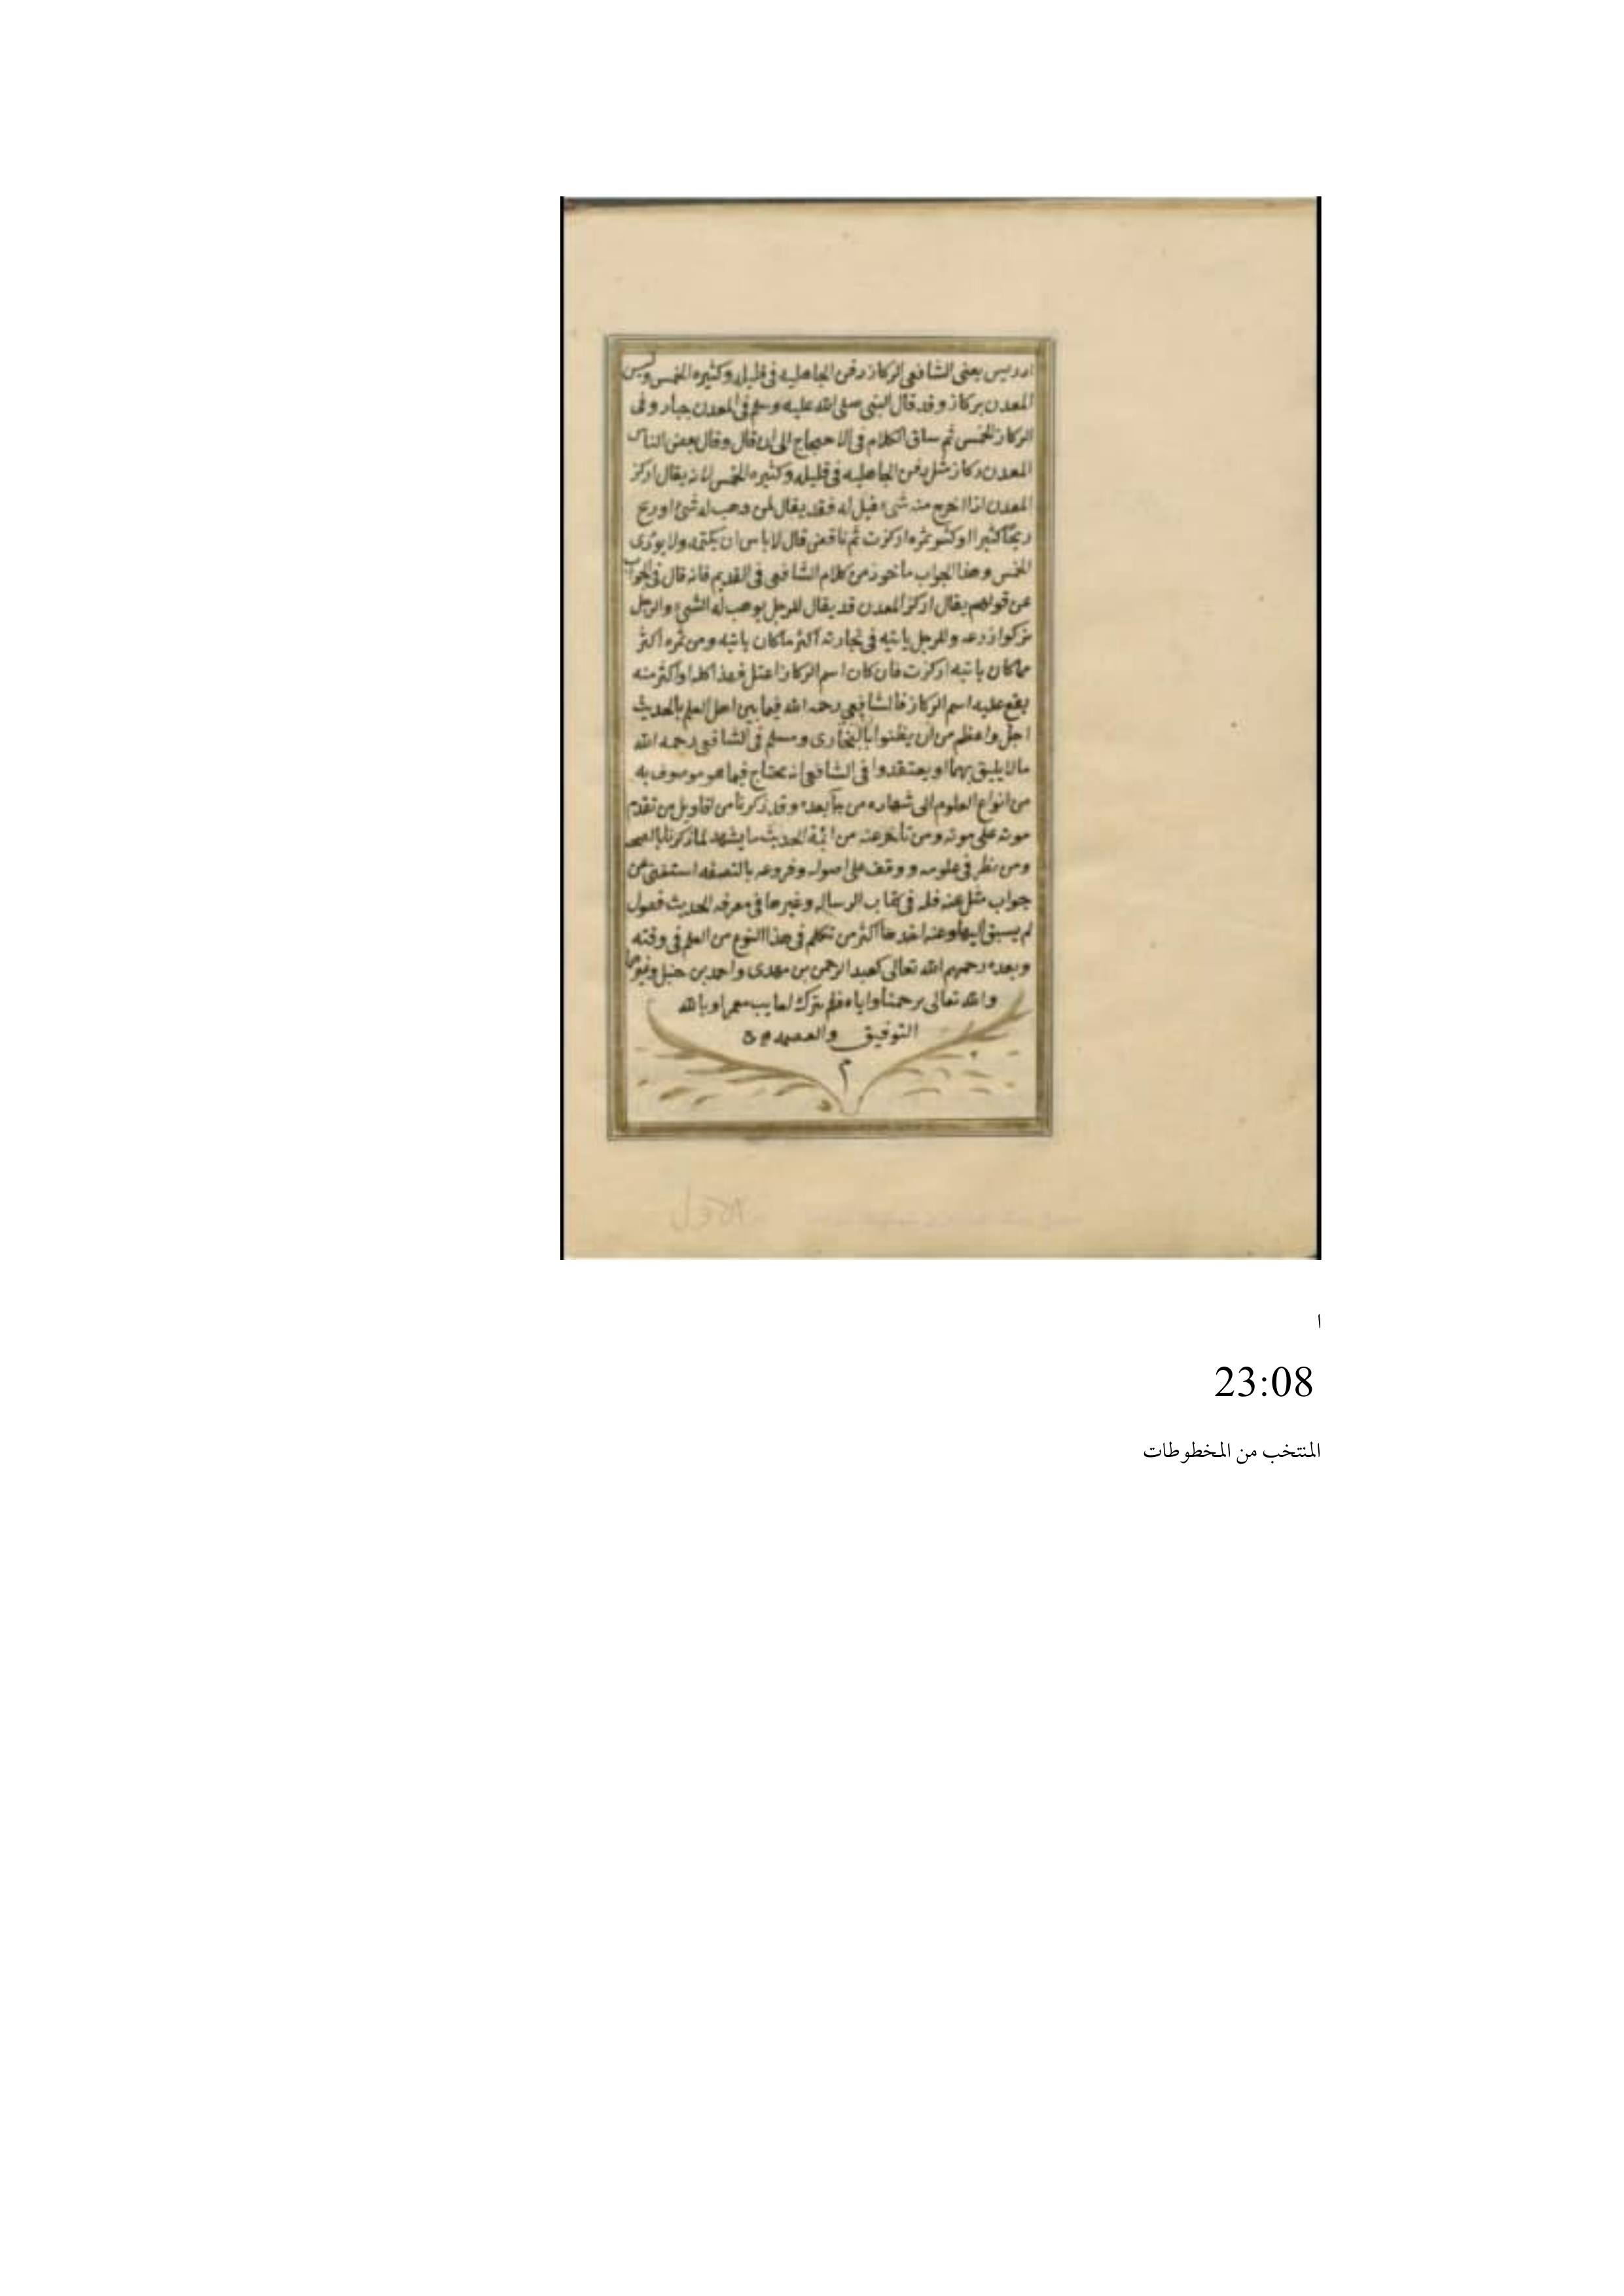 ادريس يعنى الشافعى الركاز دفن الجاهليه فى قليله وكثيره الخمس وليس
المعدن بركاز وقد قال النبى صلى الله عليه وسلم فى المعدن جبار وفى
الركاز الخمس ثم ساق الكلام فى الاحتجاج الى ان قال وقال بعض الناس
المعدن ركاز مثل دفن الجاهليه فى قليله وكثيره الخمس لانه يقال اركز
المعدن اذا اخرج منه شىء قيل له فقد يقال لمن وهب له شئ او ربح
ربحا كثيرا او كثر ثمره اركزت ثم ناقض قال لا باس ان يكتمه ولا يودى
الخمس وهذا الجواب ماخوذ من كلام الشافعى فى القديم فانه قال فى الجواب
عن قولهم يقال اركز المعدن قد يقال للرجل يوهب له الشىء والرجل
يزكوا زرعه وللرجل ياتيه فى تجارته اكثر ما كان ياتيه ومن ثمره اكثر
مما كان ياتيه اركزت فان كان اسم الركاز اعتل فهذا كله او اكثر منه
يقع عليه اسم الركاز فالشافعى رحمه الله فيما بين اهل العلم بالحديث
اجل واعظم من ان يظنوا بالبخارى ومسلم فى الشافعى رحمه الله
ما لا يليق بهما او يعتقدوا فى الشافعى انه يحتاج فيما هو موصوف به
من انواع العلوم الى شهاده من جآ بعده وقد ذكرنا من اقاويل من تقدم
موته على موته ومن تاخر عنه من ائمة الحديث ما يشهد لما ذكرنا بالصحه
ومن نظر فى علومه ووقف على اصوله وفروعه بالنصفه استغنى عن
جواب مثل هذا فله فى كتاب الرساله وغيرها فى معرفه الحديث فصول
لم يسبق اليها وعنه اخذها اكثر من تكلم فى هذا النوع من العلم فى وقته
وبعده رحمهم الله تعالى كعبد الرحمن بن مهدى واحمد بن حنبل وغيرهما
والله تعالى يرحمنا واياه فلم يترك لعايب معما وبالله
التوفيق والعصمه
م
ا
23:08
المنتخب من المخطوطات